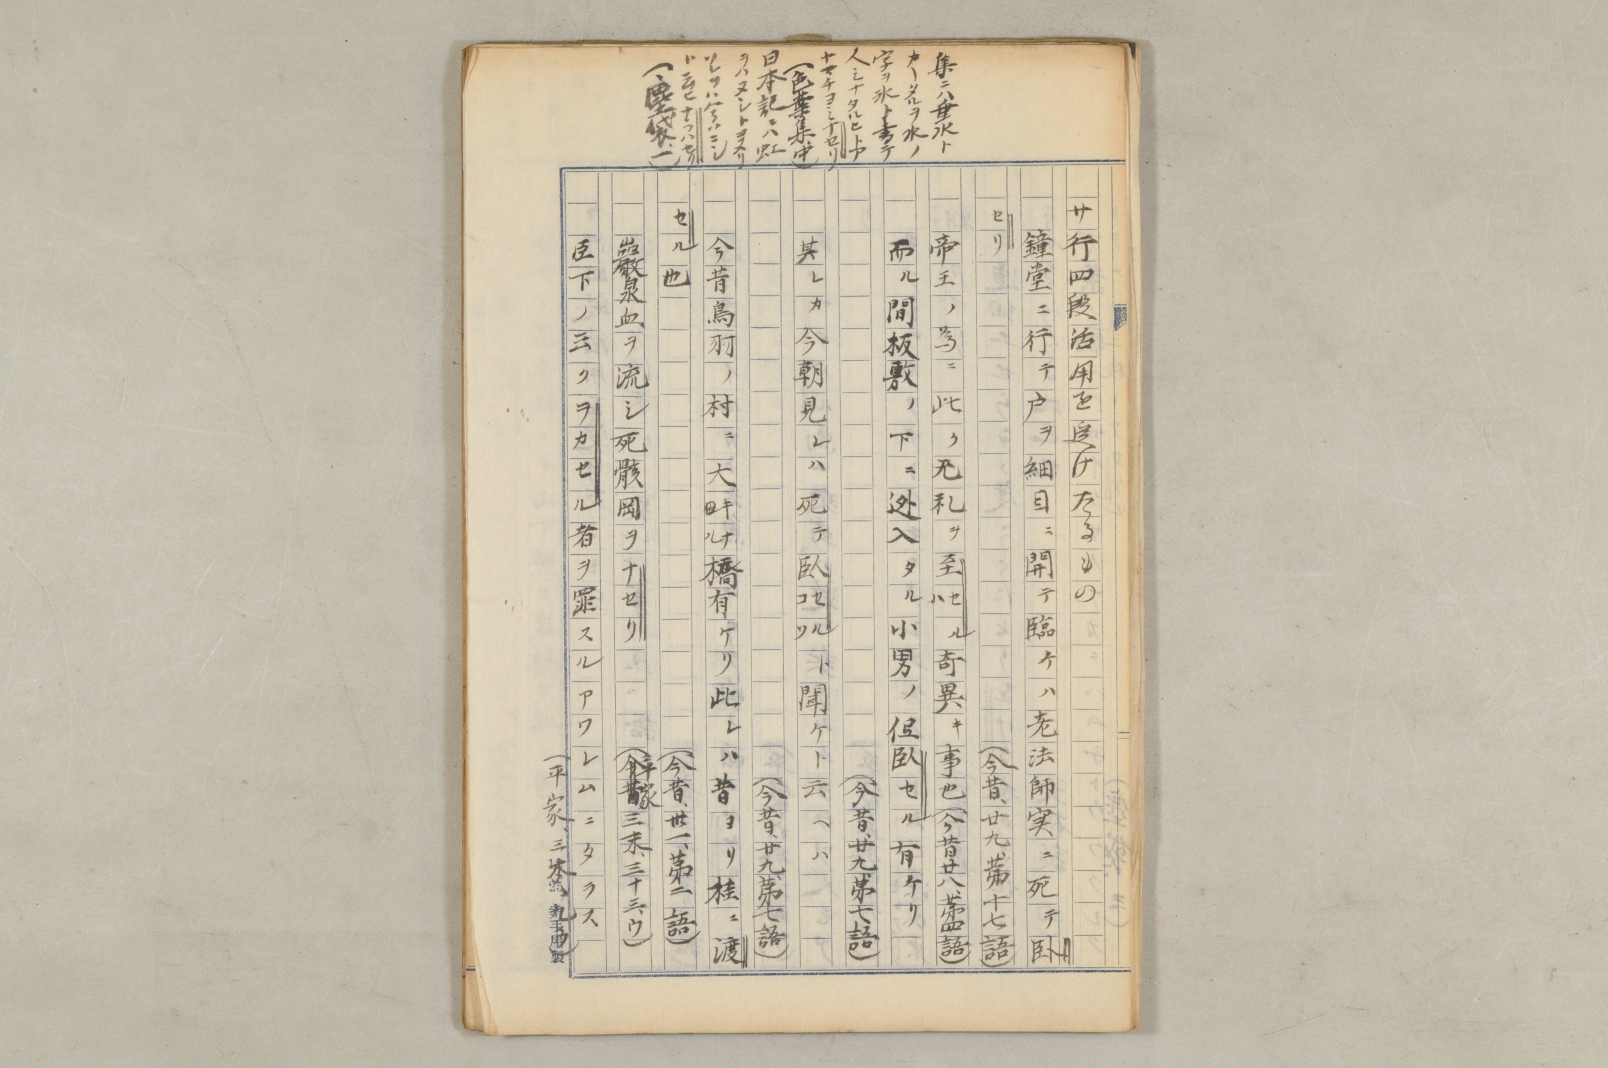 サ行四段活用を受けたるもの
鐘堂ニ行テ戸ヲ細目ニ開テ臨ケハ老法師実ニ死テ臥
セリ
(今昔、廿九、第十七語)
帝王ノ為ニ此ク无礼ヲ至セルハ奇異キ事也(今昔廿八、第四語)
而ル間板敷ノ下ニ迯入タル小男ノ低臥セル有ケリ
(今昔、廿九、第七語)
其レカ今朝見レハ死テ臥セルコソト聞ケト云ヘハ
(今昔、廿九、第七語)
今昔鳥羽ノ村ニ大キナル橋有ケリ此レハ昔ヨリ桂ニ渡
セル也
(今昔、卅一、第二語)
巌泉血ヲ流シ死骸岡ヲナセリ
(平家三末、三十三、ウ)
臣下ノ云クヲカセル者ヲ罪スルアワレムニタラス
(平家、三本、九ウ)
集ニハ垂水ト
字ヲ氷ト書テ
(色葉集、中)
日本記ニハ虹
(塵袋、一)